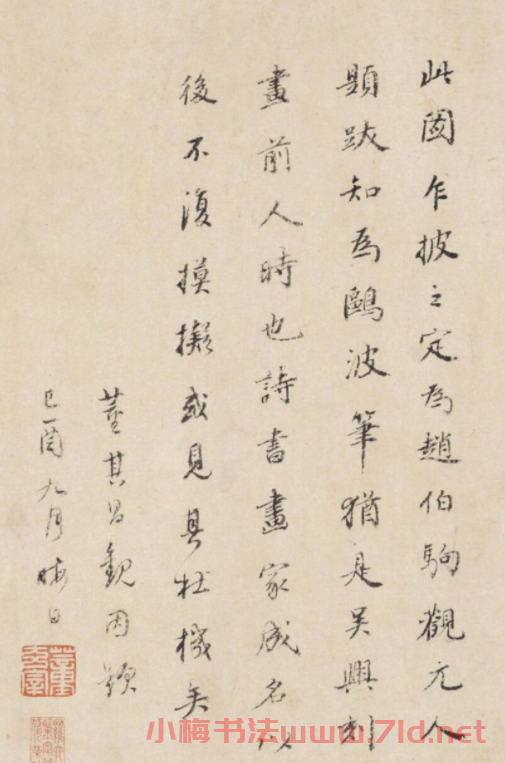 此圖乍披之定為趙伯駒觀元人
題跋知為鷗波筆猶是吳興刻
畫前人時也詩書畫家成名以
後不復摸擬或見其杜機矣
董其昌觀因題
己酉九月晦日
小梅书法www.7ld.net